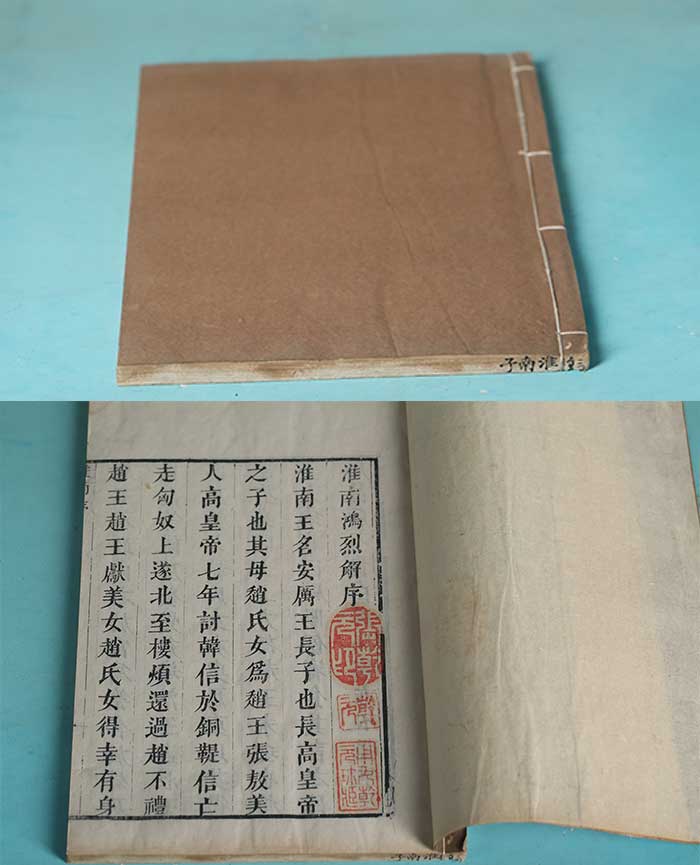 淮南子
淮南鴻烈解序
淮南王名安厲王長子也長高皇帝
之子也其母趙氏女爲趙王張敖美
人高皇帝七年討韓信於銅鞮信亡
走匈奴上遂北至樓煩還過趙不禮
趙王趙王獻美女趙氏女得幸有身
淮南子